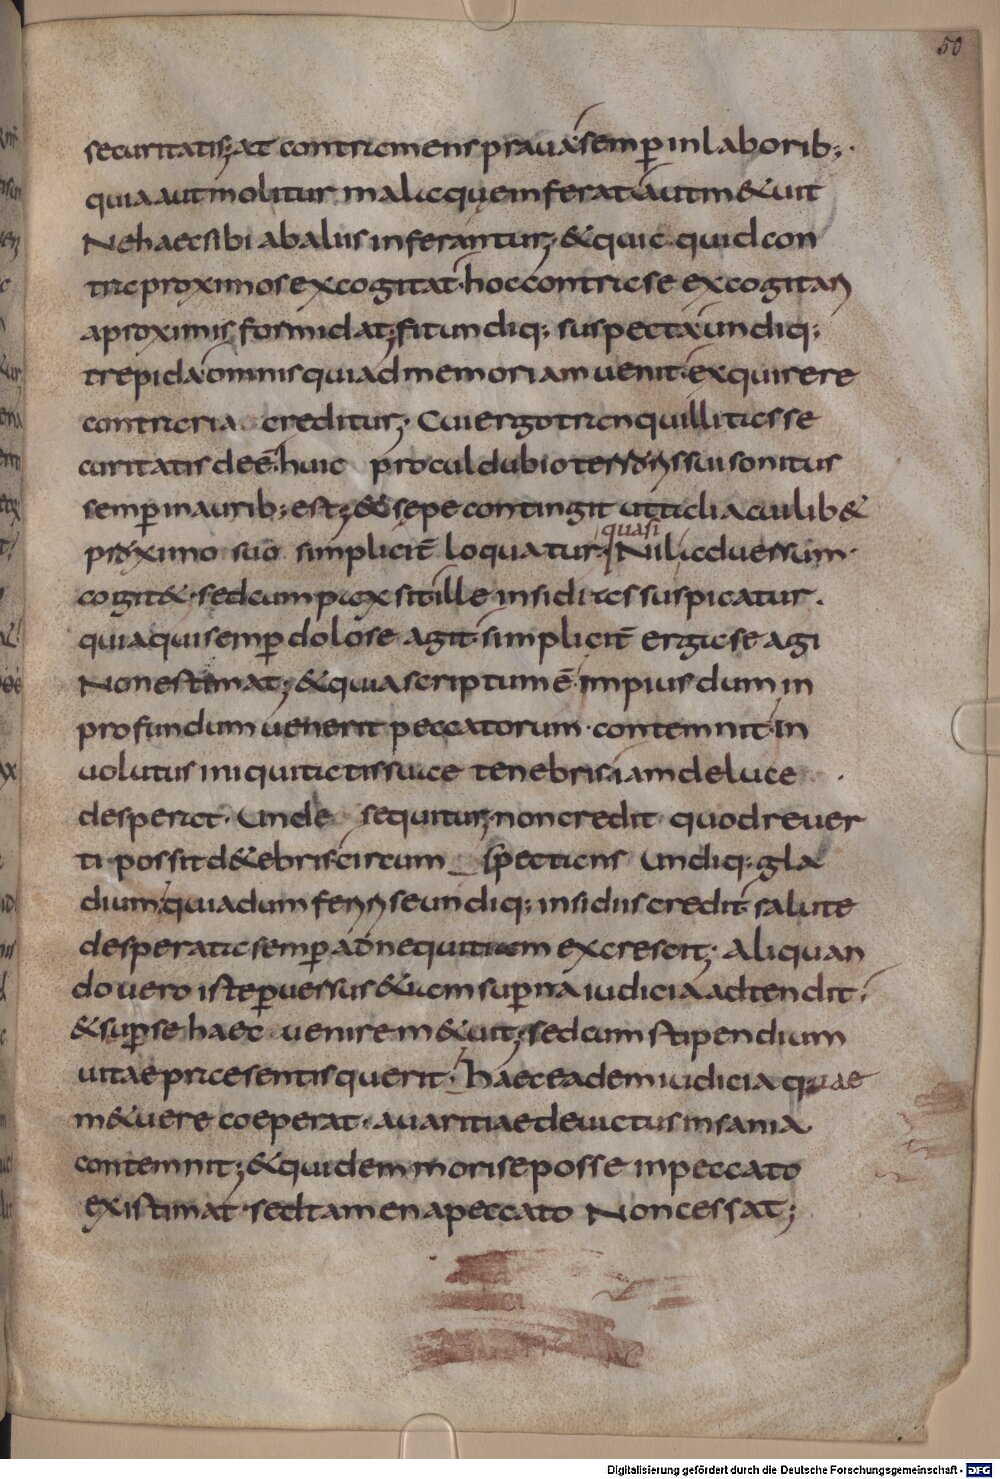 50
securitatis; at contra mens praua semp̄ in laborib;·
quia aut molitur mala quae inferat aut m&uit
Ne haec sibi ab aliis inferantur; & quic quid con
tra proximos excogitat· hoc contra se excogitari
a proximis formidat; fit undiq; suspecta undiq;
trepida· omnis qui ad memoriam uenit· exquirere
contraria creditur; Cui ergo tranquillitas se
curitatis deē· huic procul dubio terroris sui sonitus
semp̄ in aurib; est; & sepe contingit ut ti cuilib&
quasi
proximo suo simpliciť loquatur· Nil aduersum·
cogit&· sed cum pax sit· ille insidias suspicatur.
quia qui semp̄ dolose agit· simpliciť erga se agi
Non estimat; & quia scriptum ē· impius dum in
profundum uenerit peccatorum· contemnit· In
uolutus iniquitatis suae tenebris iam de luce
desperat. Unde sequitur; non credit quod reuer
ti possit de tenebris· circum spectans undiq; gla
dium; quia dum feriri se undiq; insidiis credit· salute
desperata semp̄ ad nequitiam excrescit; Aliquan
do uero iste p̄uersus &iam sup̄na iudicia adtendit·
& sup̄ se haec uenire m&uit; sed cum stipendium
uitae praesentis querit· haec eadem iudicia quae
m&uere coeperat· auaritiae deuictus insania
contemnit; & quidem mori se posse in peccato
existimat· sed tamen a peccato Non cessat;
Digitalisierung gefördert durch die Deutsche Forschungsgemeinschaft - DFG